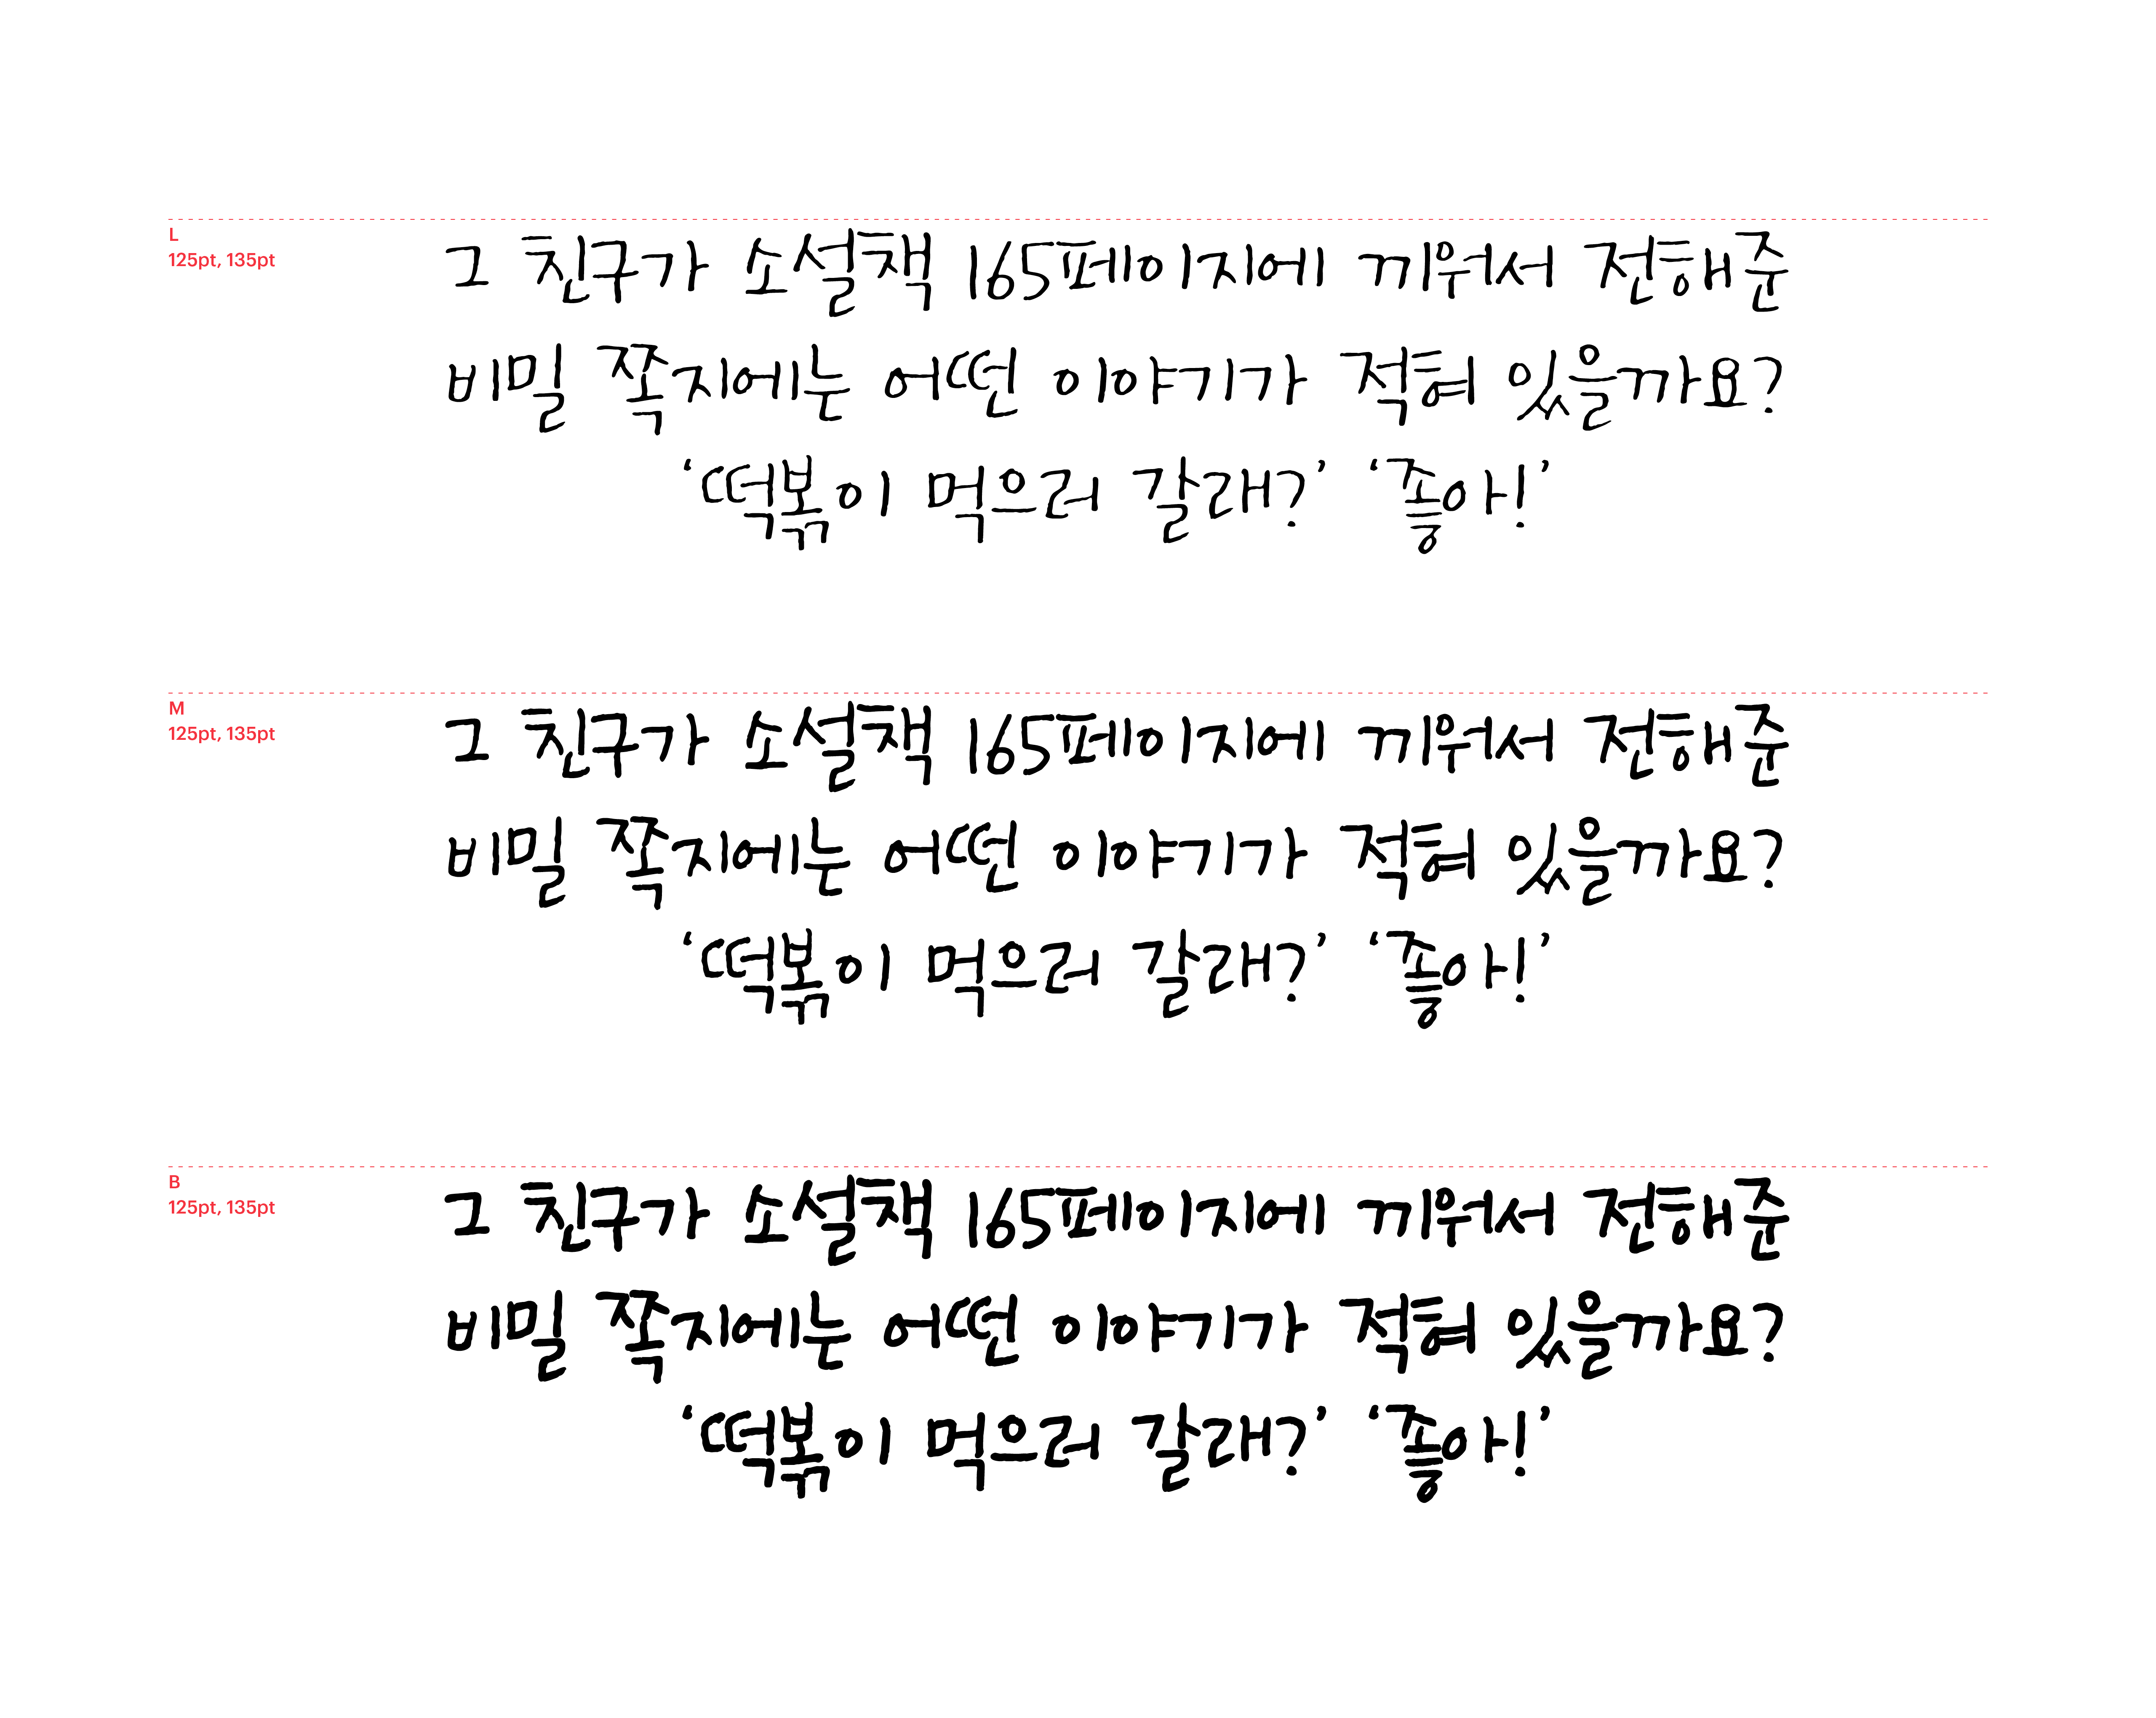 L
125pt, 135pt
그 친구가 소설책 165페이지에 끼워서 전해준
비밀 쪽지에는 어떤 이야기가 적혀 있을까요?
‘떡볶이 먹으러 갈래?’ ‘좋아!’
M
125pt, 135pt
그 친구가 소설책 165페이지에 끼워서 전해준
비밀 쪽지에는 어떤 이야기가 적혀 있을까요?
‘떡볶이 먹으러 갈래?’ ‘좋아!’
B
125pt, 135pt
그 친구가 소설책 165페이지에 끼워서 전해준
비밀 쪽지에는 어떤 이야기가 적혀 있을까요?
‘떡볶이 먹으러 갈래?’ ‘좋아!’